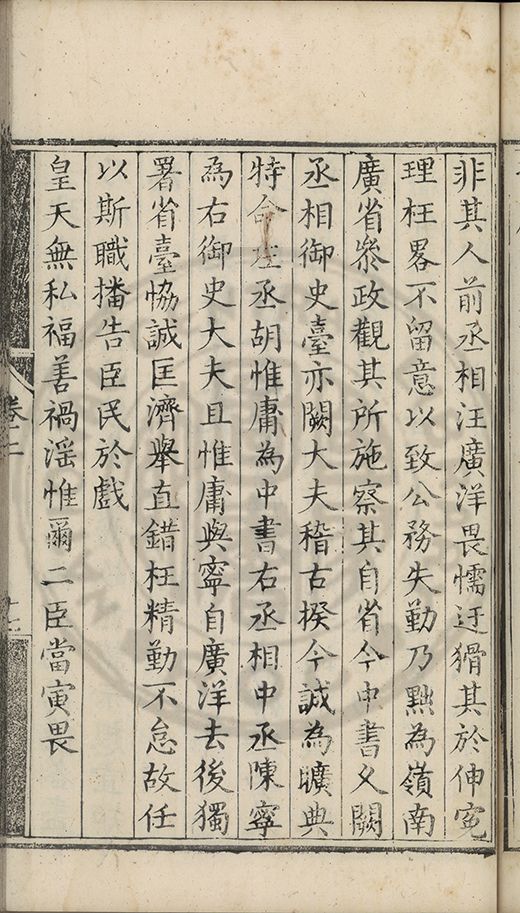 非其人前丞相汪廣洋畏懦迂猾其於伸寃
理枉畧不留意以致公務失勤乃黜為嶺南
廣省叅政觀其所施察其自省今中書久闕
丞相御史臺亦闕大夫稽古揆今誠為曠典
特命左丞胡惟庸為中書右丞相中丞陳寧
為右御史大夫且惟庸與寧自廣洋去後獨
署省臺恊誠匡濟舉直錯枉精勤不怠故任
以斯職播告臣民於戲
皇天無私福善禍淫惟爾二臣當寅畏
卷二